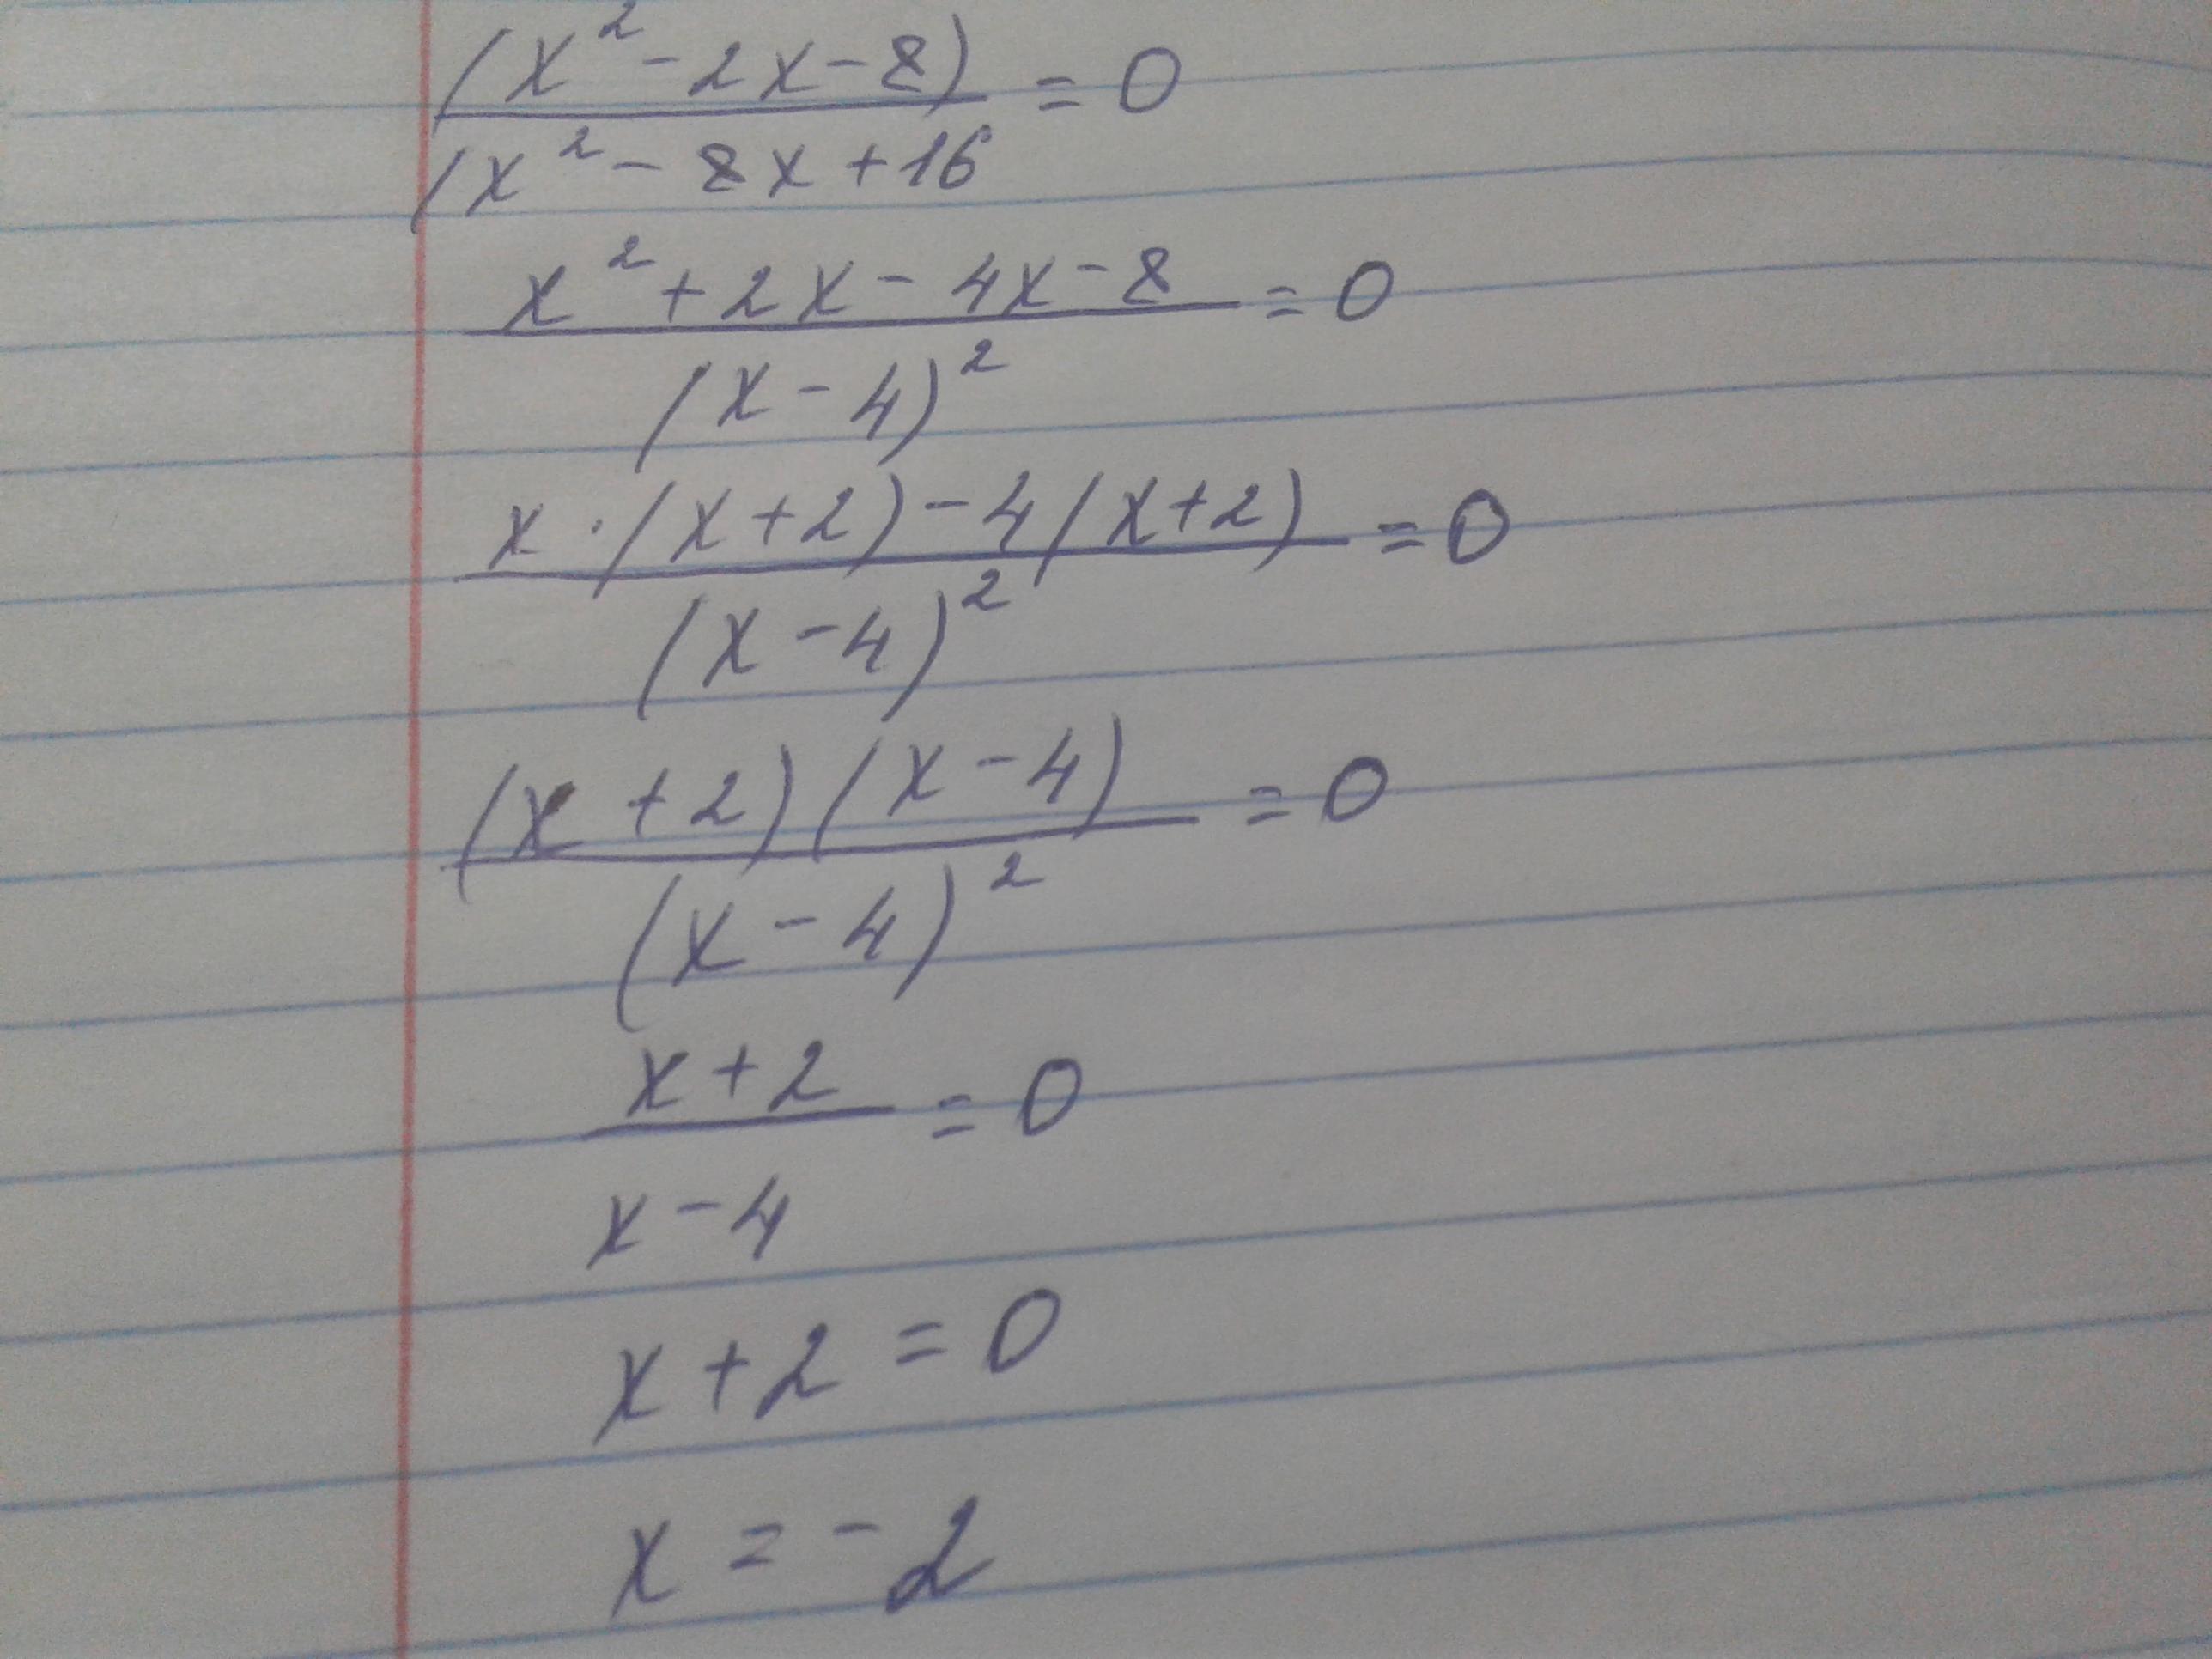 (x² - 2x - 8) / (x² - 8x + 16 = 0
x² + 2x - 4x - 8 / (x - 4)² = 0
x · (x + 2) - 4 (x + 2) / (x - 4)² = 0
(x + 2) (x - 4) / (x - 4)² = 0
x + 2 / x - 4 = 0
x + 2 = 0
x = - 2